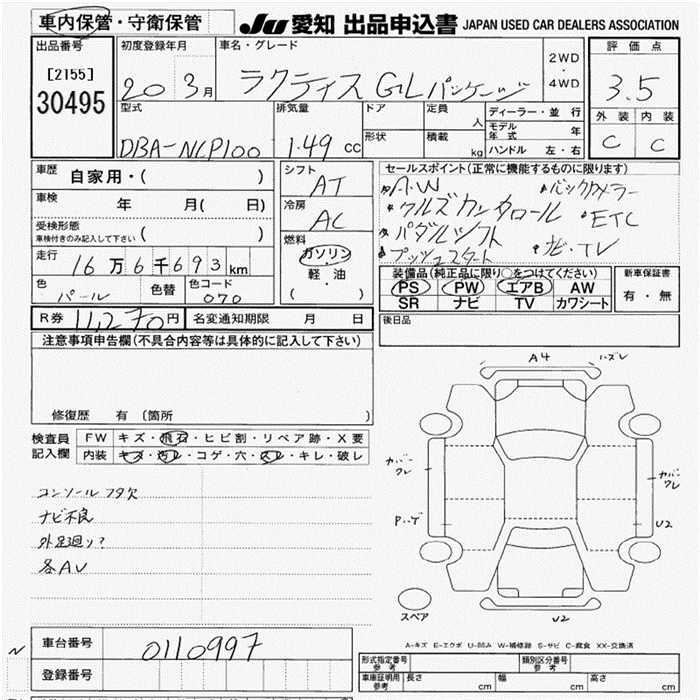 車内保管・守衛保管
JU 愛知 出品申込書 JAPAN USED CAR DEALERS ASSOCIATION
出品番号
[2155]
30495
初度登録年月
20 3月
車名・グレード
ラクティス GLパッケージ
2WD
・
4WD
評価点
3.5
外装 内装
C C
型式
DBA-NCP100
排気量
1.49 cc
ドア
形状
定員
人
積載
kg
ディーラー・並行
モデル年式 年
ハンドル 左・右
車歴
自家用・( )
車検
年 月( 日)
受検形態
車検付きのみ記入して下さい ( )
走行
16万6千693km
色
パール
色替
色コード
070
シフト
AT
冷房
AC
燃料
ガソリン
・
軽・油
( )
セールスポイント(正常に機能するものに限ります)
A.W バックカメラー
クルズカンタロール ETC
パダルシフト
プッシュスタート ナビ・TV
装備品(純正品に限り○をつけてください)
PS PW エアB AW
SR ナビ TV カワシート
新車保証書
有・無
R券 11,270円 名変通知期限 月 日
後日品
注意事項申告欄(不具合内容等は具体的に記入して下さい)
修復歴 有 〔箇所
検査員
記入欄
FW キズ・飛石・ヒビ割・リペア跡・X要
内装 キズ・汚レ・コゲ・穴・スレ・キレ・破レ
コンソールフタ欠
ナビ不良
外足廻リ?
各AU
A4 ハズレ
カバーワレ
カバーワレ
U2
スペア
U2
A-キズ E-エクボ U-凹み W-補修跡 S-サビ C-腐食 XX-交換済
車台番号
0110997
登録番号
型式指定番号
参考
類別区分番号
参考
車庫証明用
参考
長さ cm
幅 cm
高さ cm